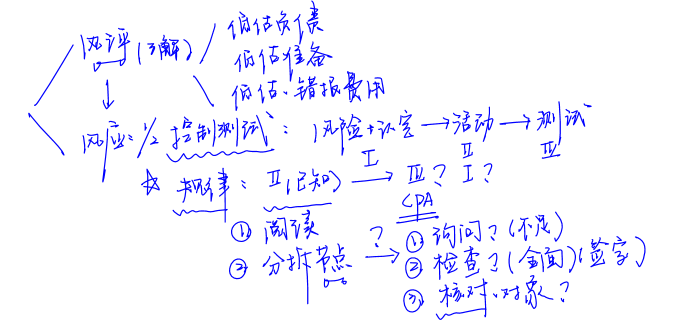 风评(了解)
估估负债
估估准备
估估、错报费用
风应：1/2 控制测试：风险+认定→活动→测试
I II III
☆ 规律：II(已知)→III？I？
CPA
① 阅读
② 分拆节点 ？→
① 询问？(不足)
② 检查？(全面)(签字)
③ 核对、对象？